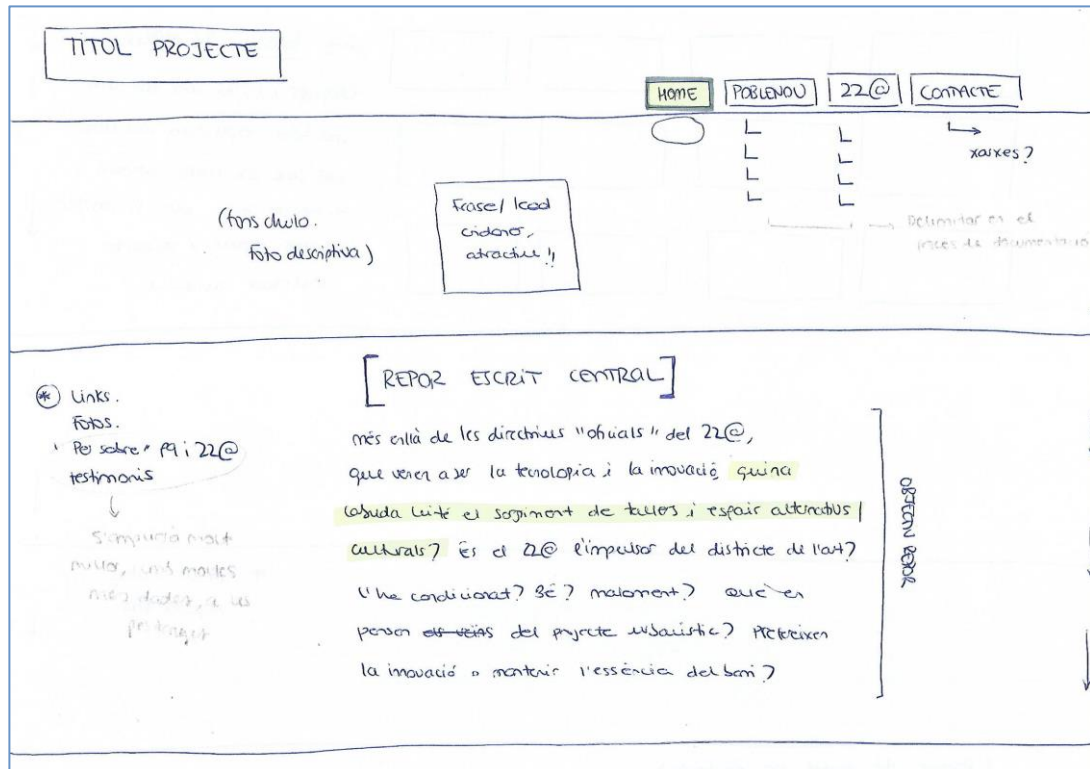 TÍTOL PROJECTE
HOME POBLENOU 22@ CONTACTE
xarxes?
(fons chulo.
foto descriptiva)
Frase/lead
cridaner,
atractiu!!
Delimitar en el
procés de documentació
* Links.
Fotos.
"Per sobre" P9 i 22@
testimonis
S'ampliarà molt
millor, amb moltes
més dades, a les
pestanyes
[REPOR ESCRIT CENTRAL]
més enllà de les directrius "oficials" del 22@,
que venen a ser la tecnologia i la innovació, quina
cabuda té el sorgiment de tallers i espais alternatius /
culturals? És el 22@ l'impulsor del districte de l'art?
L'ha condicionat? Bé? malament? Què en
pensen els veïns del projecte urbanístic? Prefereixen
la innovació o mantenir l'essència del barri?
OBJECTIU REPOR